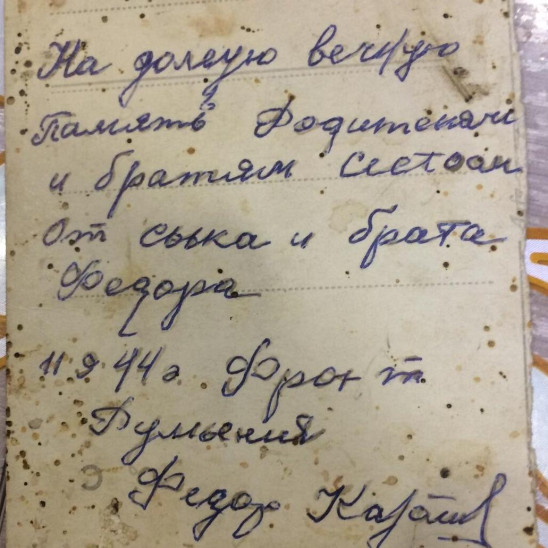 На долгую вечную
Память Родителям
и братьям сестрам
От сына и брата
Федора
11 9 44 г Фронт
Румыния
Федор